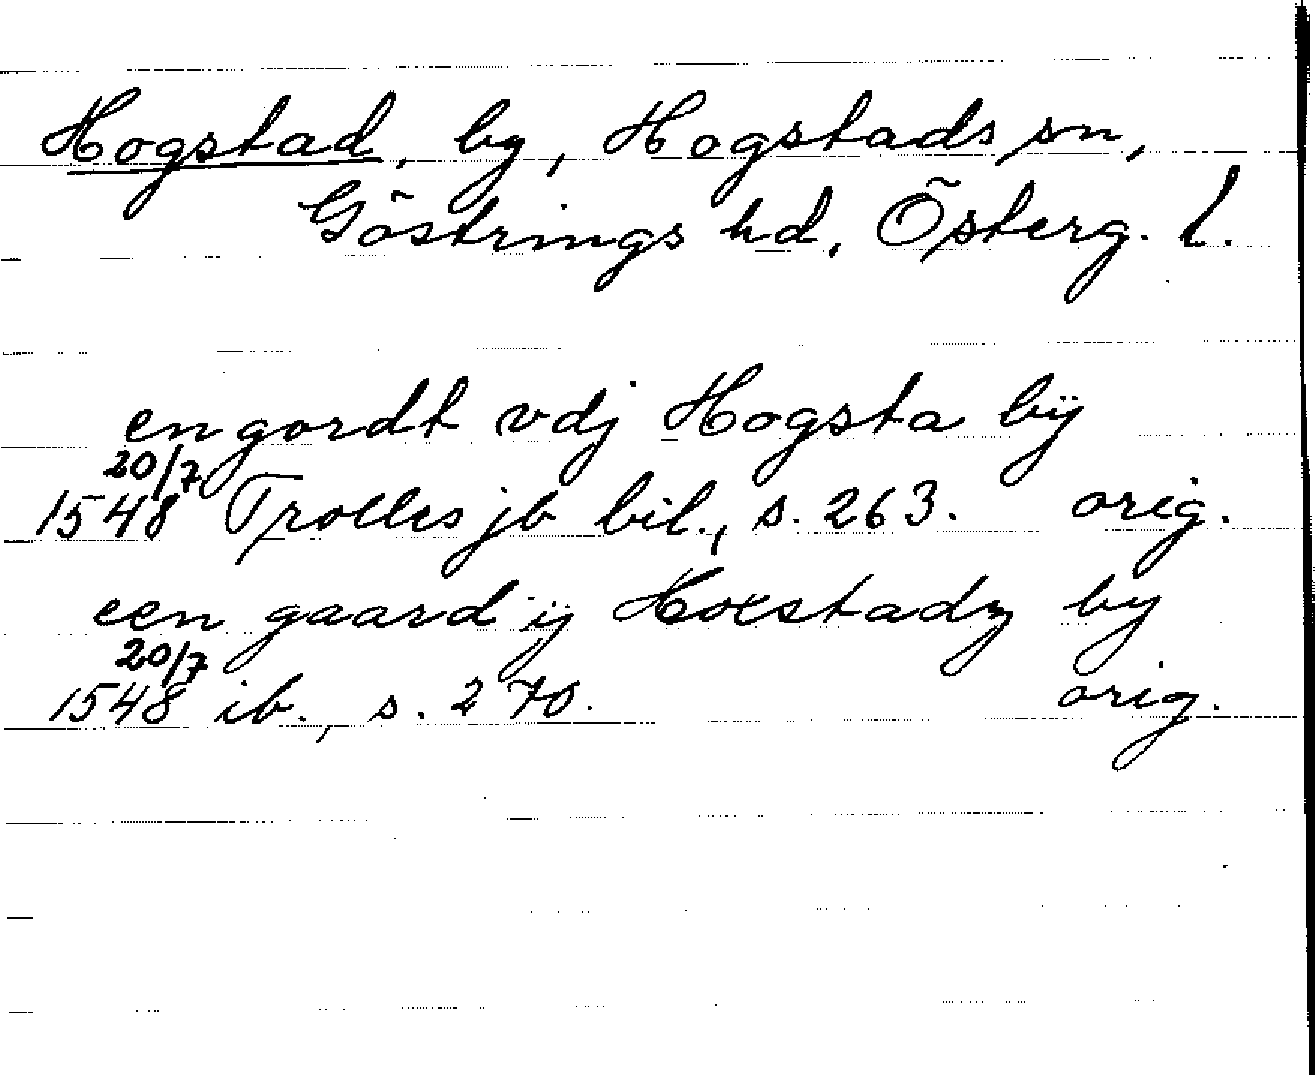 Hogstad, by, Hogstads sn,
Göstrings hd, Österg. l.
en gordt vdj Hogsta bÿ
20/7
1548 Trolles jb bil., s. 263. orig.
een gaard ij Hoxstadz by
20/7
1548 ib., s. 270. orig.